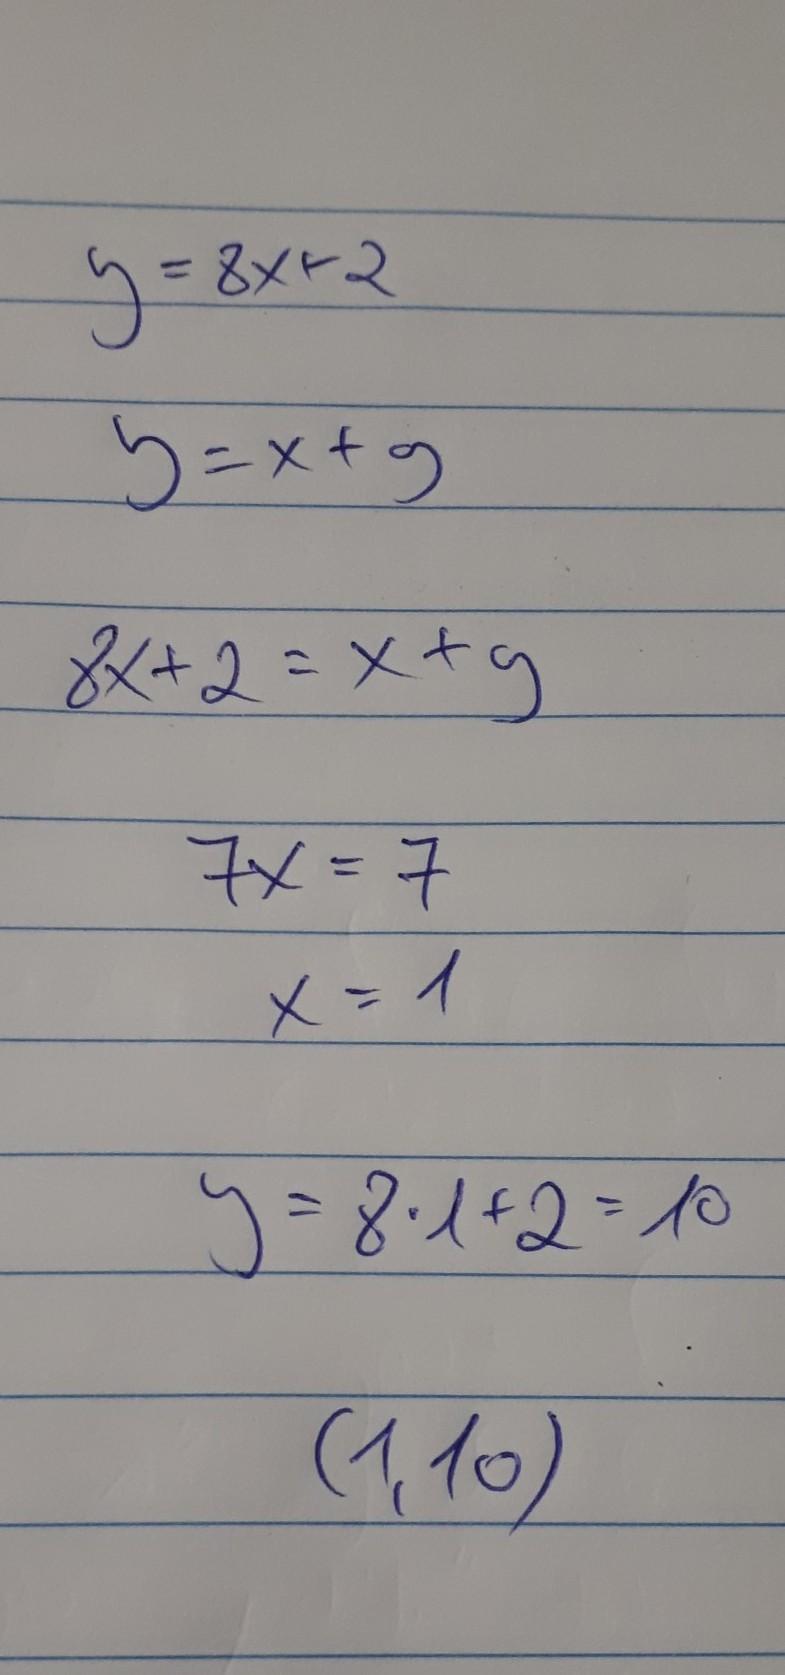 y = 8x + 2
y = x + 9
8x + 2 = x + 9
7x = 7
x = 1
y = 8·1 + 2 = 10
(1,10)